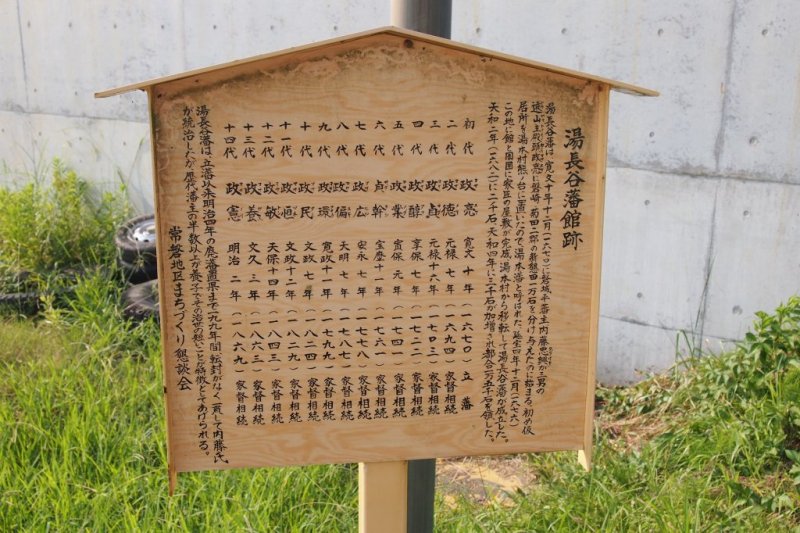 湯長谷藩館跡
湯長谷藩は、寛文十年十二月(一六七〇)に磐城平藩主内藤忠興が三男の
遠山主殿頭政亮に磐崎、菊田二郡の新墾田一万石を分け与えたのに始まる。初め仮
居所を湯本村熊ノ台に置いたので湯本藩と呼ばれた。延宝四年十二月(一六七六)
この地に館と周囲に家臣の屋敷が完成、湯本村から移転して湯長谷藩が成立した。
天和二年(一六八二)に二千石、天和四年に三千石が加増され都合一万五千石を領した。
初代 政亮 寛文十年(一六七〇)立藩
二代 政徳 元禄七年(一六九四)家督相続
三代 政貞 元禄十六年(一七〇三)家督相続
四代 政醇 享保七年(一七二二)家督相続
五代 政業 寛保元年(一七四一)家督相続
六代 貞幹 宝暦十一年(一七六一)家督相続
七代 政広 安永七年(一七七八)家督相続
八代 政偏 天明七年(一七八七)家督相続
九代 政環 寛政十一年(一七九九)家督相続
十代 政民 文政七年(一八二四)家督相続
十一代 政恒 文政十二年(一八二九)家督相続
十二代 政敏 天保十四年(一八四三)家督相続
十三代 政養 文久三年(一八六三)家督相続
十四代 政憲 明治二年(一八六九)家督相続
湯長谷藩は、立藩以来明治四年の廃藩置県まで一九九年間転封がなく一貫して内藤氏
が統治したが歴代藩主の半数以上が養子でその治世の短いことが特徴としてあげられる。
常磐地区まちづくり懇談会